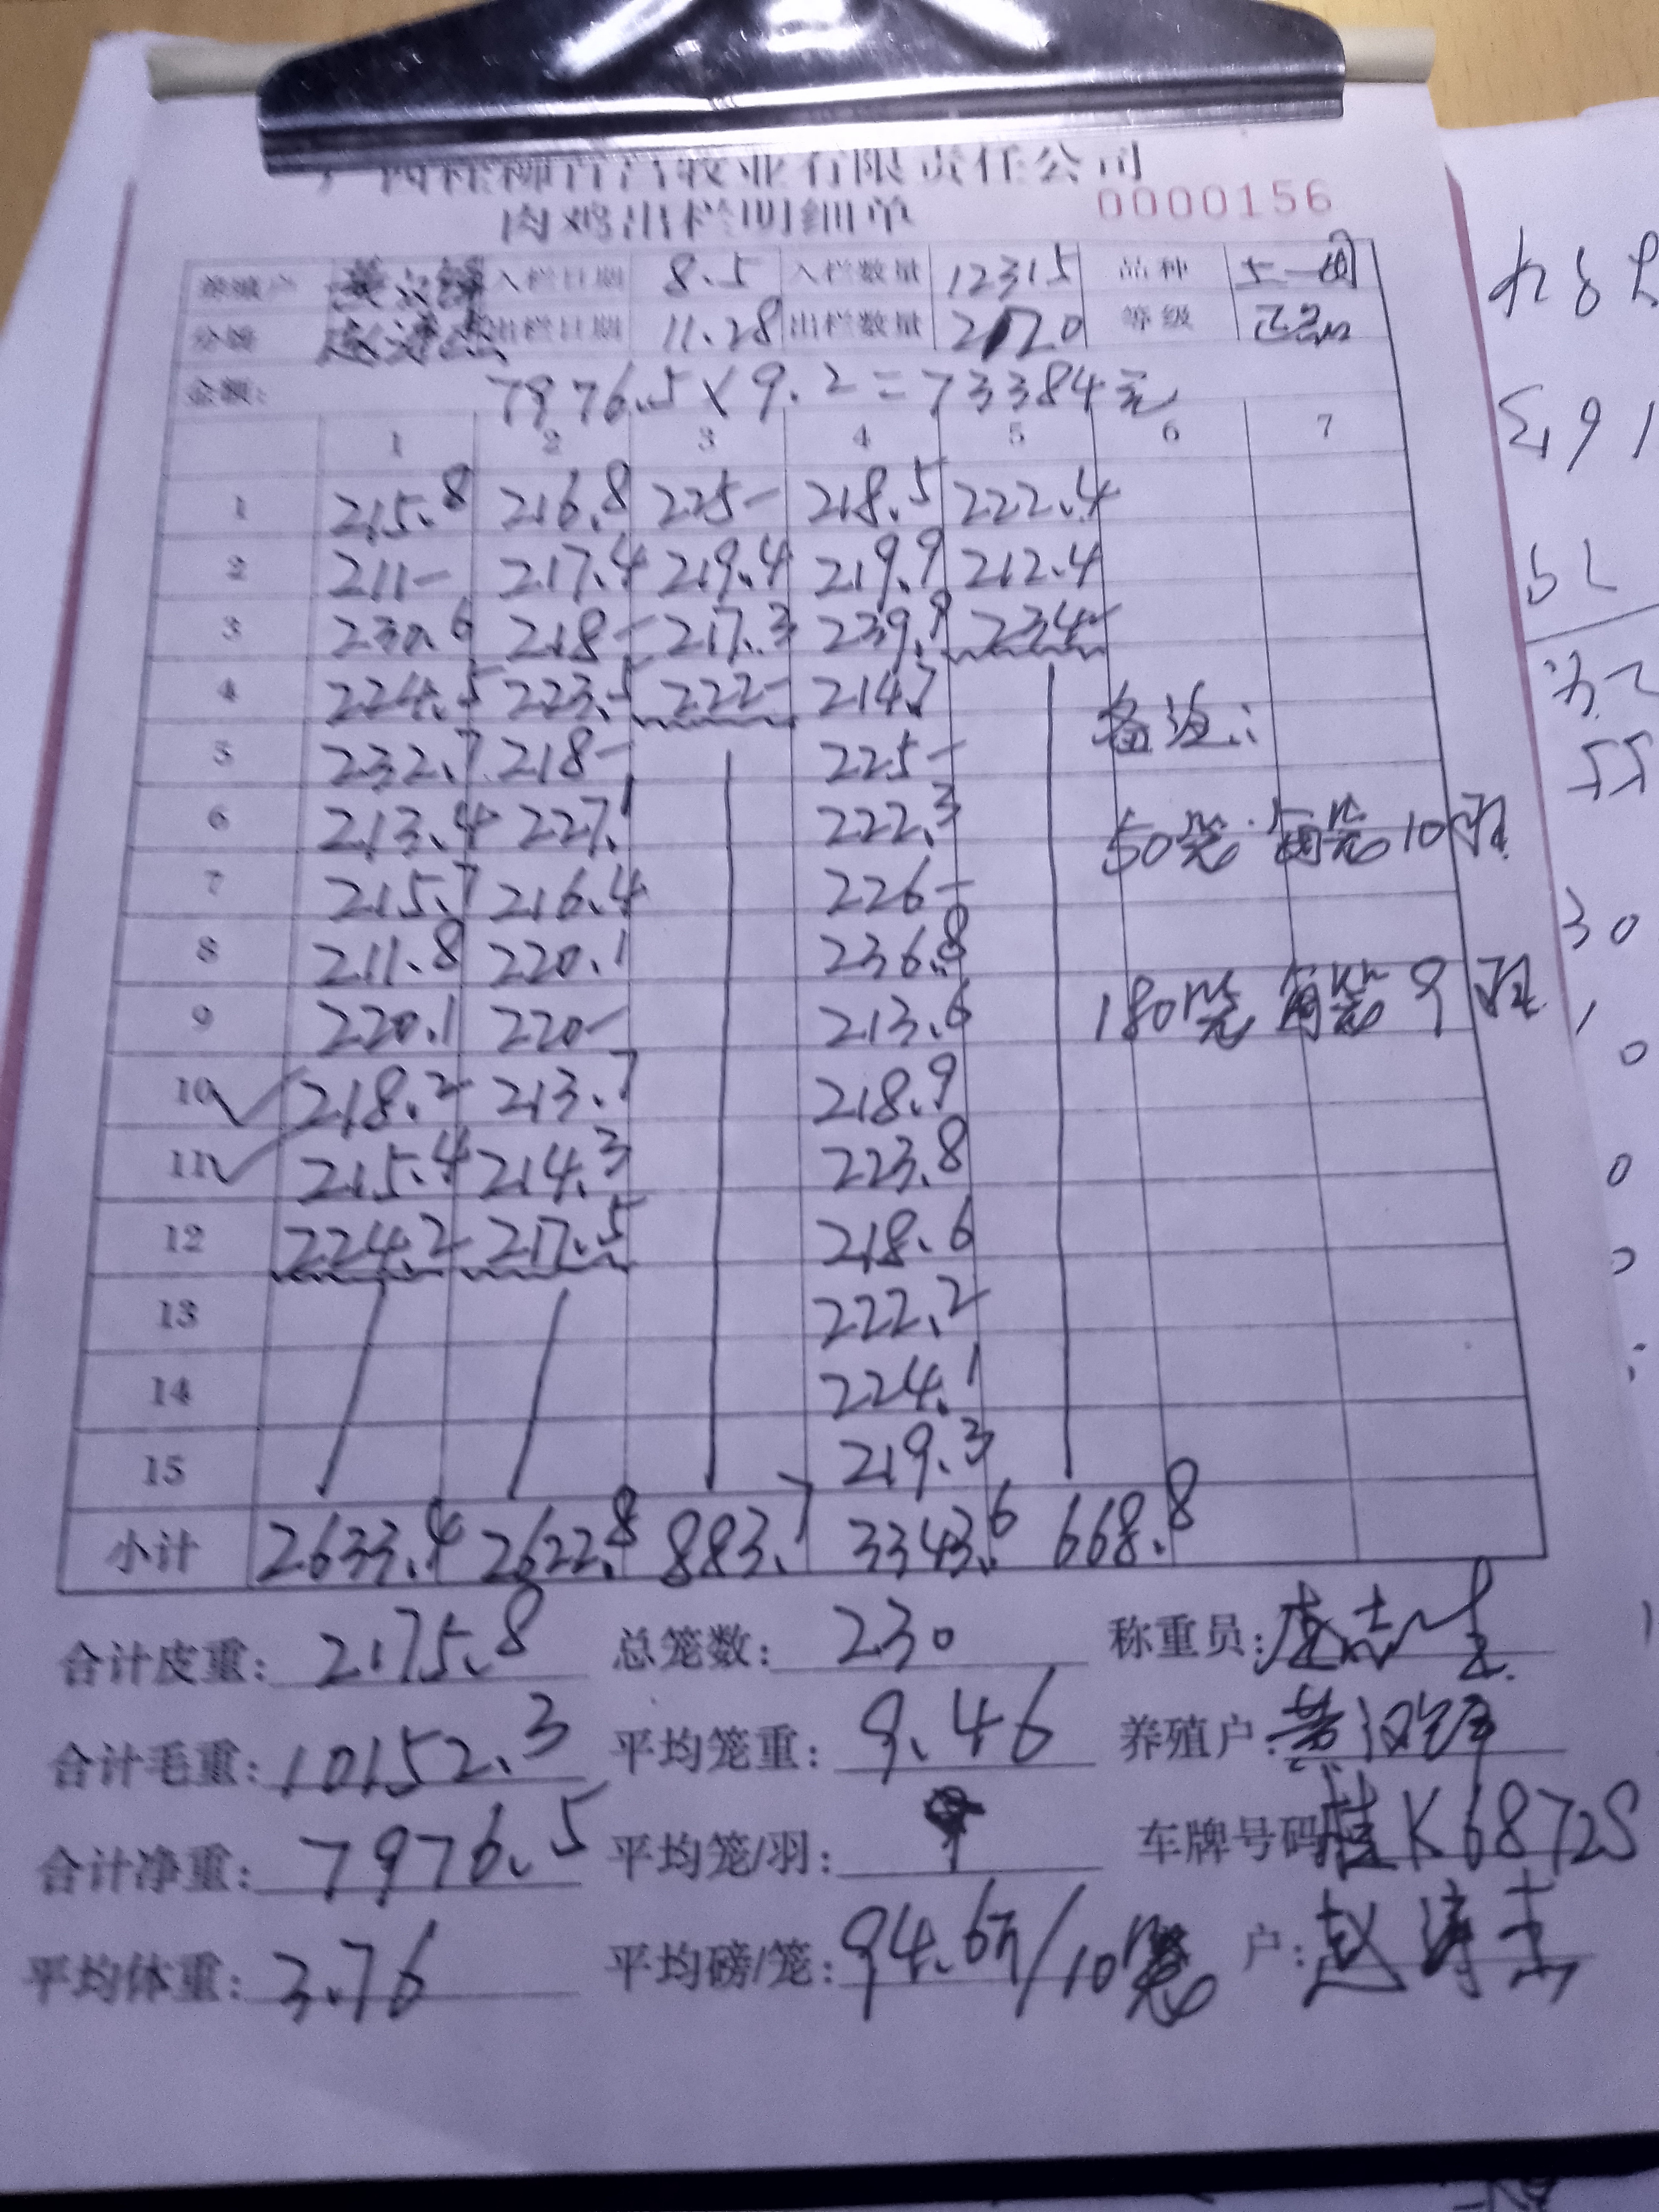 牧业有限责任公司
肉鸡出栏明细单 0000156
养殖户 入栏日期 8.5 入栏数量 12315 品种
分级 出栏日期 11.28 出栏数量 2120 等级 正品
金额: 7976.5×9.2=73384元
1 2 3 4 5 6 7
1 215.8 216.8 225- 218.5 222.4
2 211- 217.4 219.4 219.9 212.4
3 230.6 218- 217.3 239.9 234-
4 224.5 223.5 222- 214.7
备注:
5 232.7 218- 225-
6 213.4 227.1 222.3 50笼 每笼10羽
7 215.7 216.4 226-
8 211.8 220.1 236.8
9 220.1 220- 213.6 180笼 每笼9羽
10 218.2 213.7 218.9
11 215.4 214.3 223.8
12 224.2 217.5 218.6
13 222.2
14 224.1
15 219.3
小计 2633.4 2622.8 883.7 3343.6 668.8
合计皮重: 2175.8 总笼数: 230 称重员:
合计毛重: 10152.3 平均笼重: 9.46 养殖户: 黄
合计净重: 7976.5 平均笼/羽: 车牌号码 桂K6872S
平均体重: 3.76 平均磅/笼: 94.6斤/10笼 户: 赵涛杰